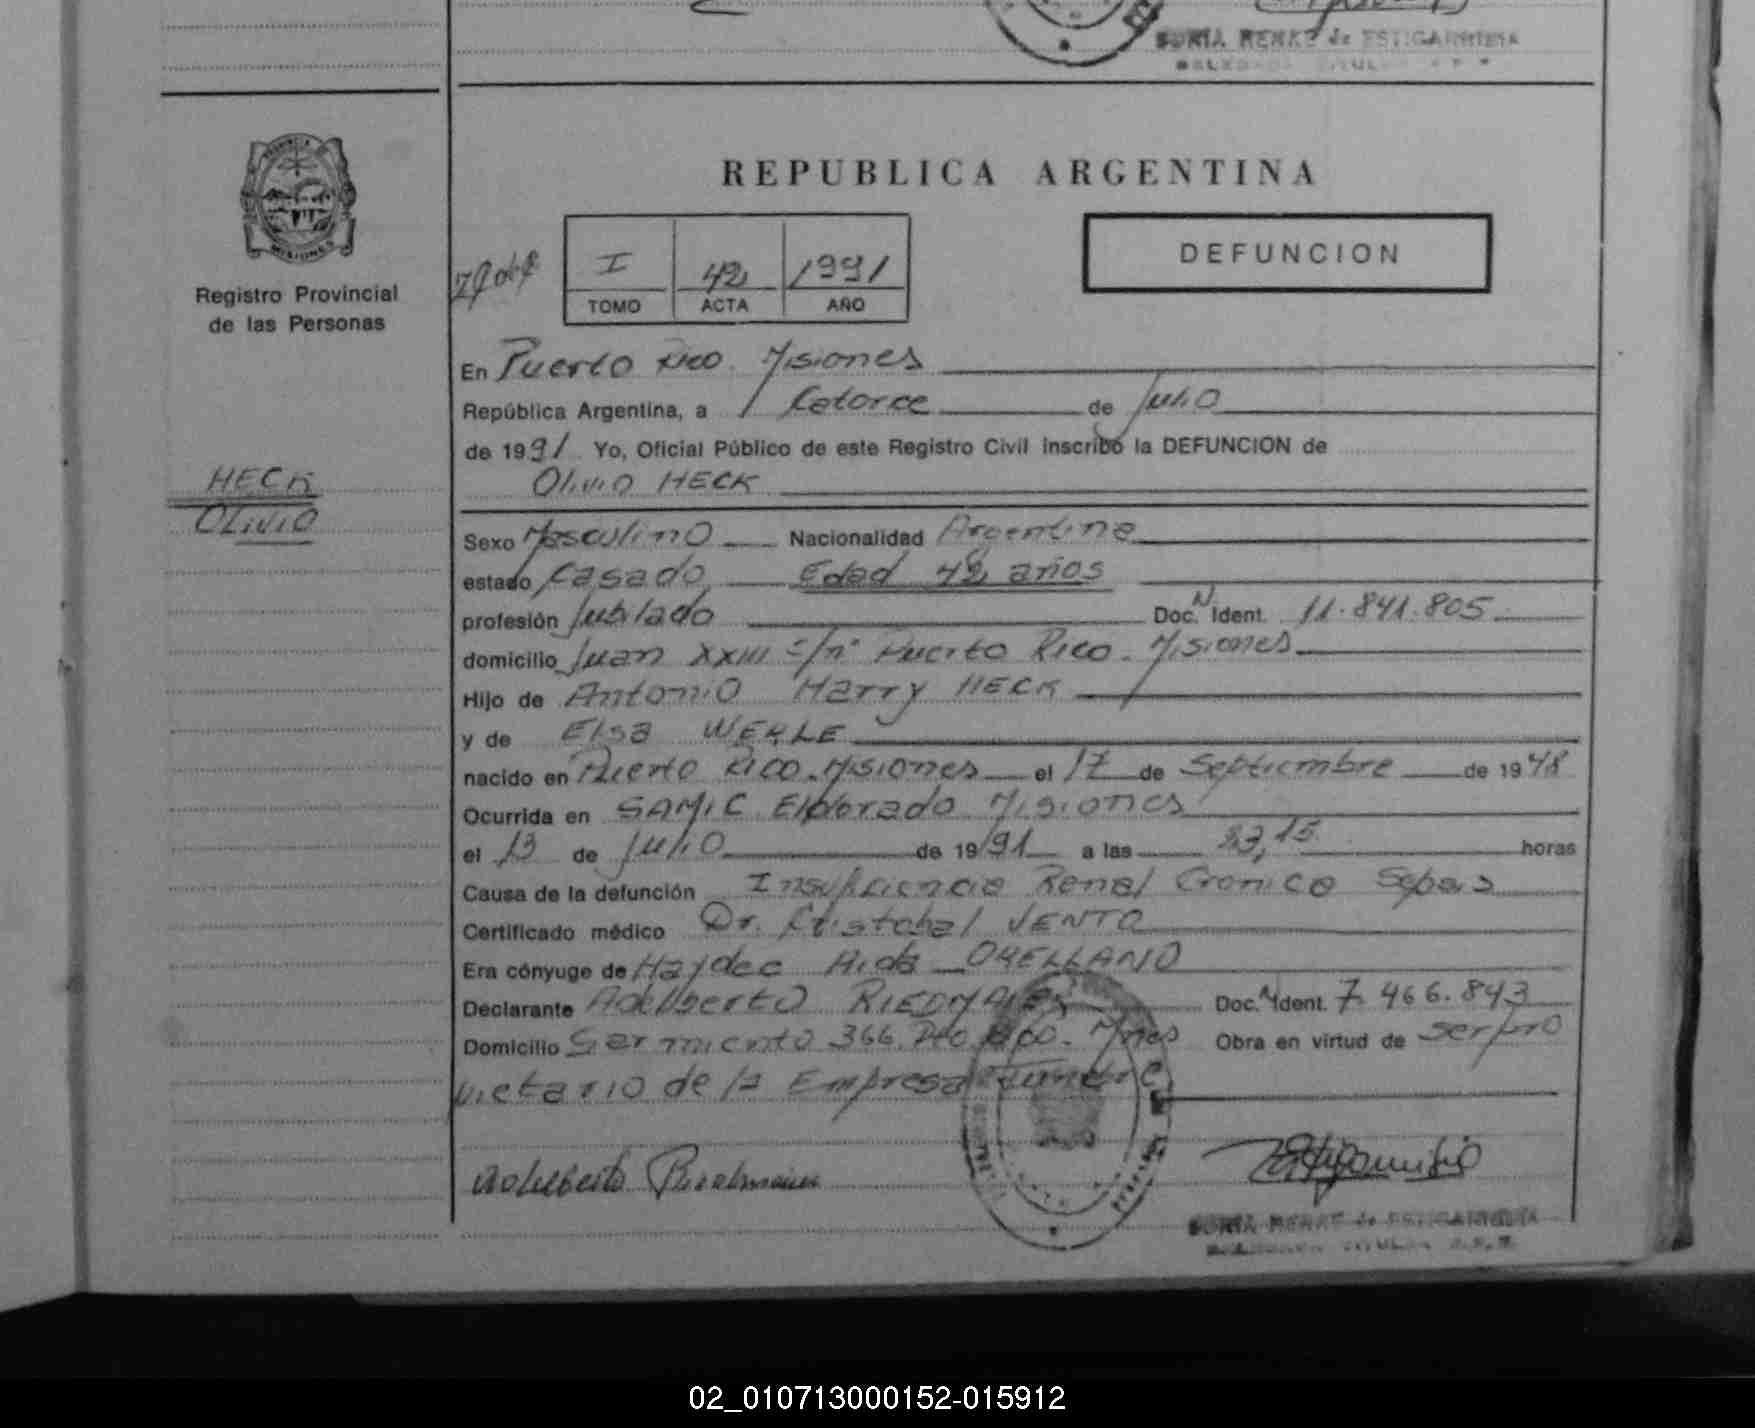 SONIA RENKE de ESTIGARRIBIA
REPUBLICA ARGENTINA
DEFUNCION
I 42 1991
TOMO ACTA AÑO
PROVINCIA
MISIONES
Registro Provincial
de las Personas
En Puerto Rico. Misiones
República Argentina, a Catorce de Julio
de 1991 Yo, Oficial Público de este Registro Civil inscribo la DEFUNCION de
Olivio HECK
HECK
OLIVIO
Sexo Masculino Nacionalidad Argentina
estado Casado Edad 42 años
profesión Jubilado Doc. N Ident. 11.841.805
domicilio Juan XXIII s/nº Puerto Rico. Misiones
Hijo de Antonio Harry HECK
y de Elsa WERLE
nacido en Puerto Rico. Misiones el 17 de Septiembre de 1948
Ocurrida en SAMIC Eldorado Misiones
el 13 de Julio de 1991 a las 23,15 horas
Causa de la defunción Insuficiencia Renal Cronica Sepsis
Certificado médico Dr. Cristobal VENTO
Era cónyuge de Haydee Aida ORELLANO
Declarante Adelberto Doc. N Ident. 7.466.843
Domicilio Sarmiento 366 Pto Rico. Mnes Obra en virtud de ser pro
pietario de la Empresa Funebre
SONIA RENKE de ESTIGARRIBIA
02_010713000152-015912